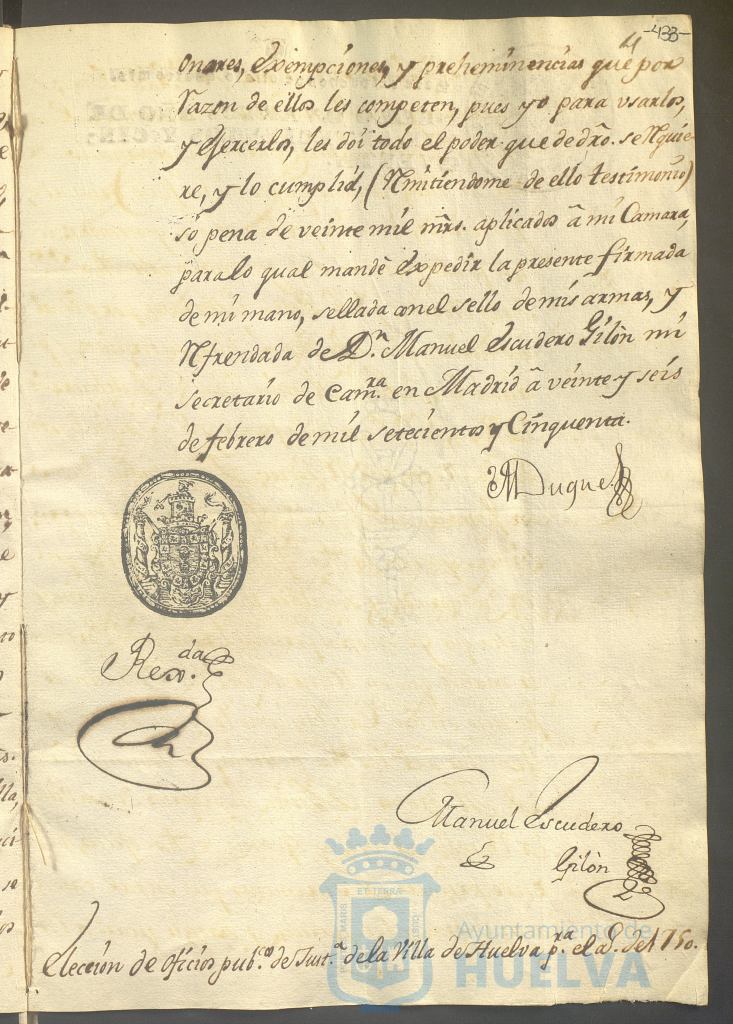 -433-
4
onores, exempciones, y preheminencias que por
razon de ellos les competen, pues yo para vsarlos,
y Exercerlos, les doi todo el poder que de dro. se rrquie-
re, y lo cumplid, (rmitiendome de ello testimonio)
so pena de veinte mil mrs. aplicados â mi Camara,
para lo qual mandè expedir la presente firmada
de mi mano, sellada con el sello de mis armas, y
rfrendada de Dn. Manuel Escudero Gilòn mi
secretario de Camra. en Madrid â veinte y seis
de febrero de mil setecientos y Cinquenta.
Duque
Rexda.
Manuel Escudero
Gilòn
Elección de oficios pubcos. de Justa. de la Villa de Huelva pra. el a. de 1750.
ET TERRÆ
Ayuntamiento de
HUELVA